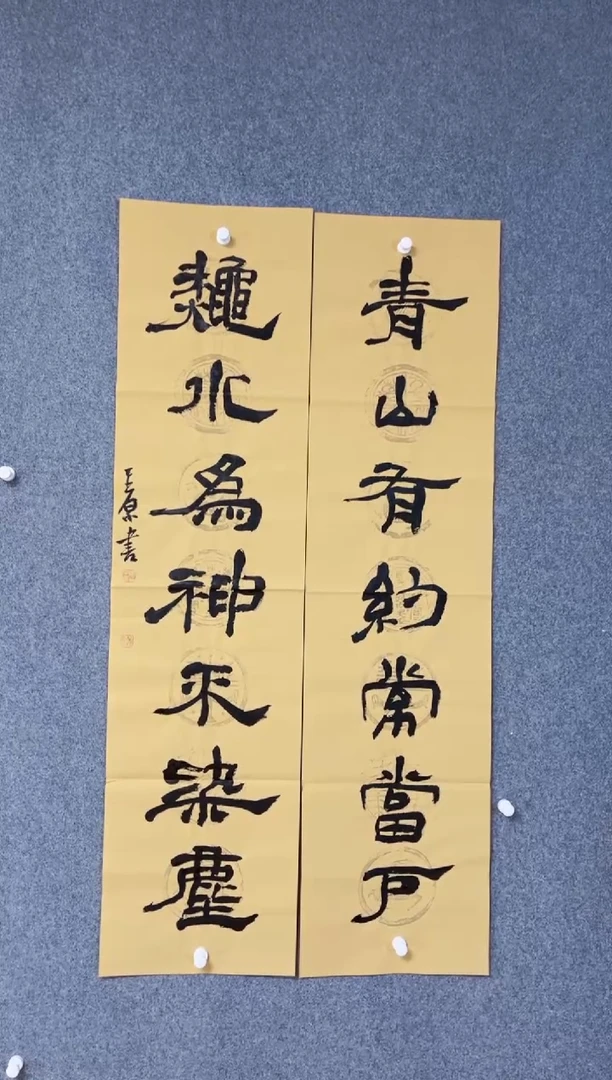 青山有約常當戶
龝水為神不染塵
王原書